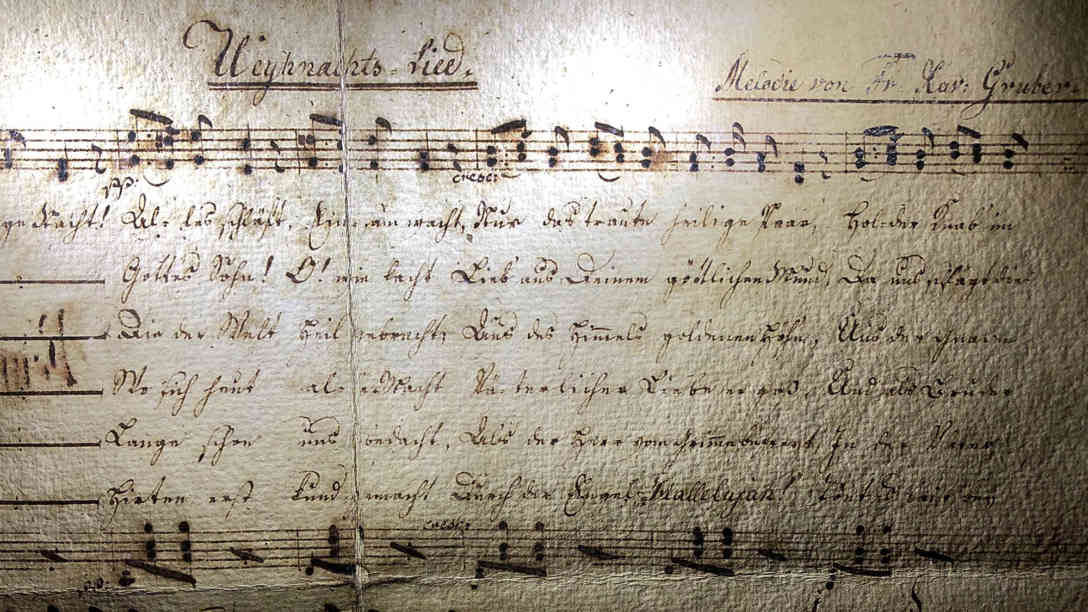 Weyhnachts=Lied.
Melodie von Fr. Xav: Gruber.
pp: cresc:
ge Nacht! Al= les schläft. Ein= sam wacht, Nur das traute heilige Paar, Hol=der Knab' im
Gottes Sohn! O! wie lacht Lieb' aus Deinem göttlichen Mund, Da uns schlägt die
Die der Welt Heil gebracht, Aus des Himmels goldenen Höhn, Uns der Gnaden
Wo sich heut alle Macht Vä=terlicher Liebe ergoß, Und als Bruder
Lange schon uns bedacht, Als der Herr vom Grimme befreyt In der Väter
Hirten erst kund gemacht Durch der Engel Hallelujah! Tönt es laut bey
cresc: